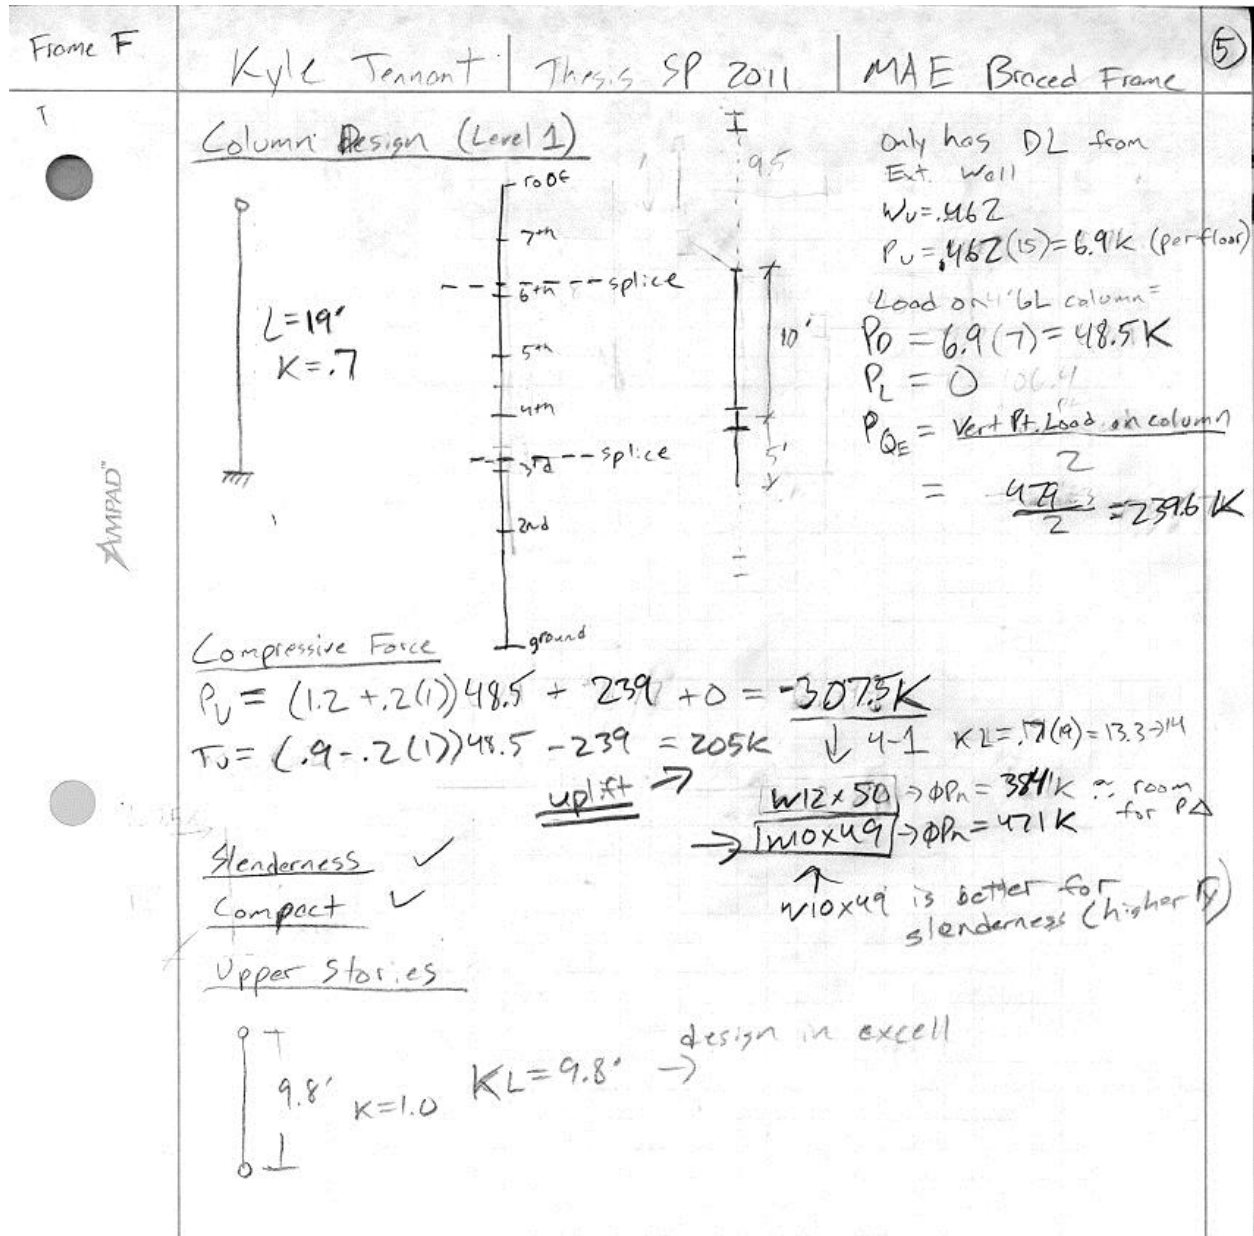 Frame F
Kyle Tennant | Thesis SP 2011 | MAE Braced Frame
5
Column Design (Level 1)
roof
7th
6th
splice
5th
4th
3rd
splice
2nd
ground
L=19'
K=.7
9.5
10'
5'
only has DL from
Ext. Wall
Wu=.462
Pu=.462(15)=6.9K (per floor)
Load on column=
PD = 6.9(7)=48.5K
PL = 0
PQE = Vert Pt. Load on column
2
= 479
2
=239.6K
AMPAD™
Compressive Force
Pu = (1.2+.2(1))48.5 + 239 +0 = -307.5K
Tu= (.9-.2(1))48.5 -239 = 205K
↓ 4-1 KL=.7(19)=13.3→14
uplift →
W12x50 → φPn = 384K ∴ room
for PΔ
→ W10x49 → φPn=471K
↑
W10x49 is better for
slenderness (higher ry)
Slenderness ✓
Compact ✓
Upper Stories
9.8'
K=1.0
KL=9.8' →
design in excell